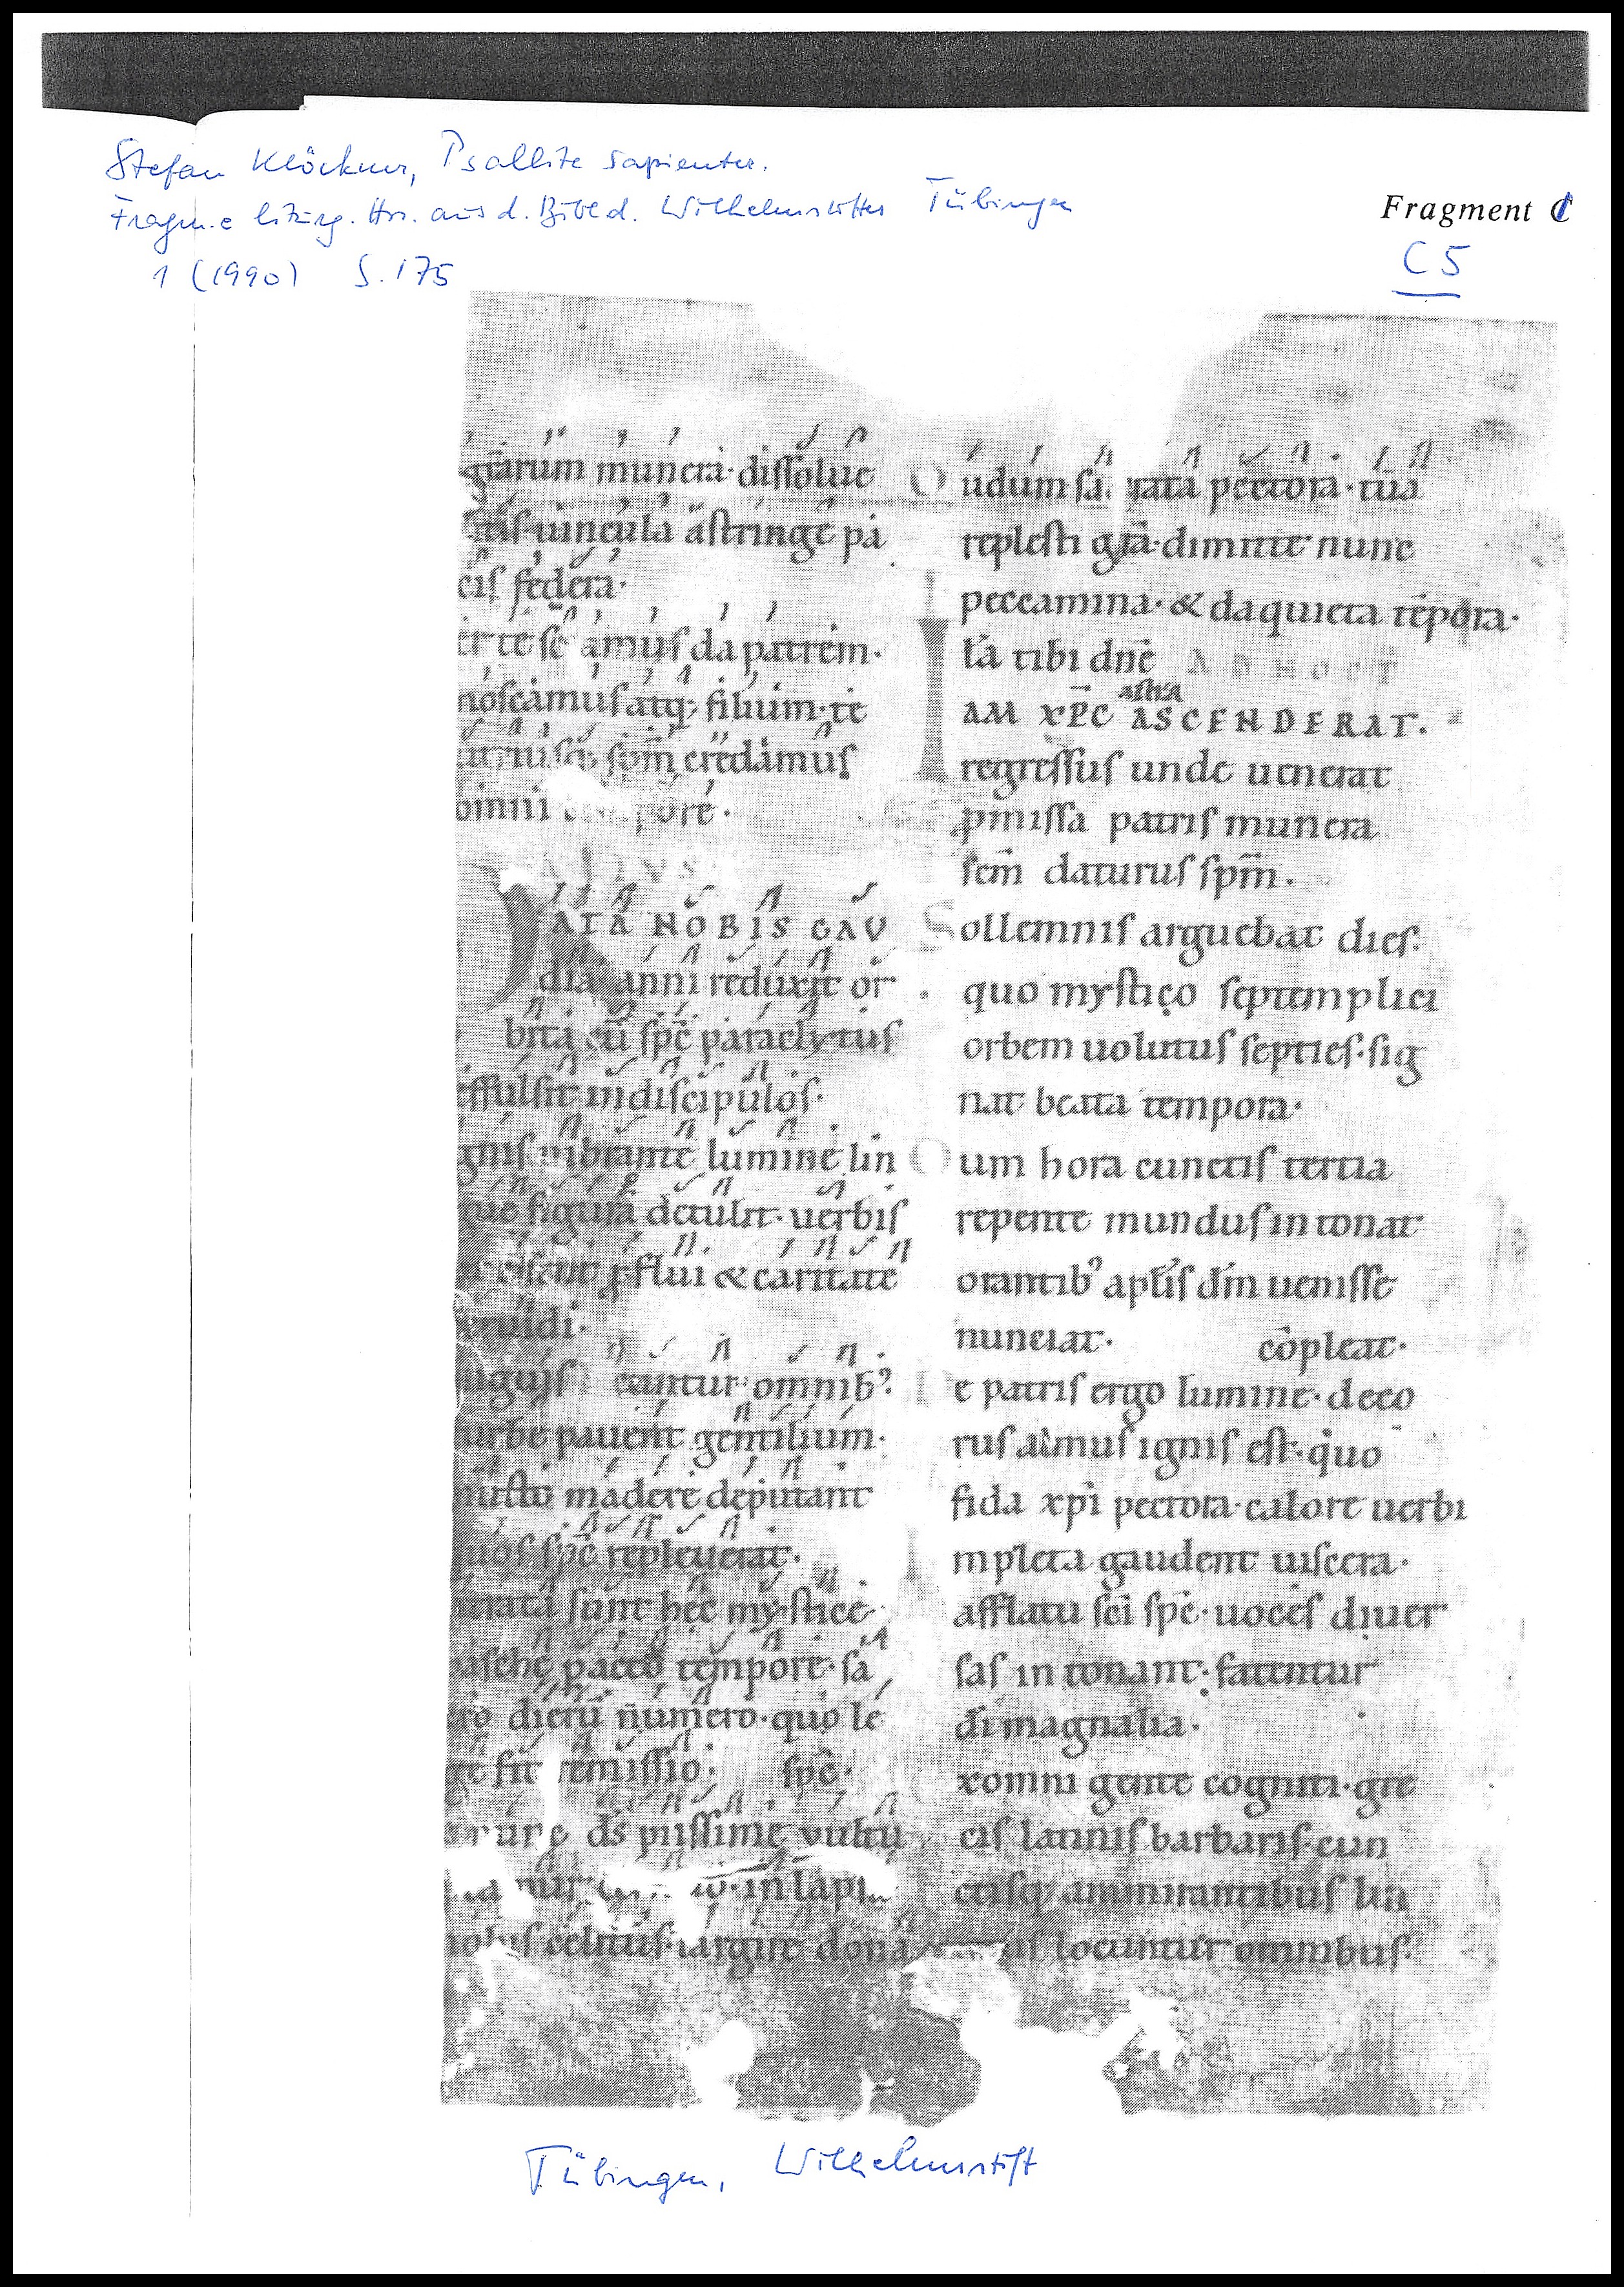 Stefan Klöckner, Psallite sapienter.
Fragm.e liturg. Hss. aus d. Bibl. d. Wilhelmsstiftes Tübingen
1 (1990) S. 175
Fragment C
C 5
gr̄arum munera· dissolue
uincula astringe pa
cis federa·
er te sc amus da patrem·
noscamus atq; filium· te
sp̄m credamus
omni pore·
ATA NOBIS GAV
dia anni reduxit or
bita cū sp̄c paraclytus
effulsit in discipulos·
gnis uibrante lumine lin
gue figura detulit· uerbis
p̱flui & caritate
uidi·
cantur omnib;
urbe pauent gentilium·
musto madere deputant
uos sp̄c repleuerat·
trata sunt hec mystice·
asche pacto tempore· sa
ro dierū numero· quo le
ge fit remissio· sp̄c·
d̄s piissime vultu
in
celitus· largire dona
udum sa rata pectora· tua
replesti gr̄a· dimitte nunc
peccamina· & da quieta tēpora·
l̄a tibi dn̄e AD NOCT
astra
IAM XP̄C ASCENDERAT.
regressus unde uenerat
p̱missa patris munera
sc̄m daturus sp̄m.
Sollemnis arguebat dies·
quo mystico septemplici
orbem uolutus septies· sig
nat beata tempora·
um hora cunctis tertia
repente mundus intonat
orantib; apl̄is dm̄ uenisse
nunciat· cōpleat·
e patris ergo lumine· deco
rus almus ignis est· quo
fida xp̄i pectora· calore uerbi
Impleta gaudent uiscera·
afflatu sc̄i sp̄c· uoces diuer
sas in tonant· fatentur
dī magnalia·
xomni gente cogniti· gre
cis latinis barbaris· cun
ctisq; ammirantibus lin
locuntur omnibus·
Tübingen, Wilhelmsstift